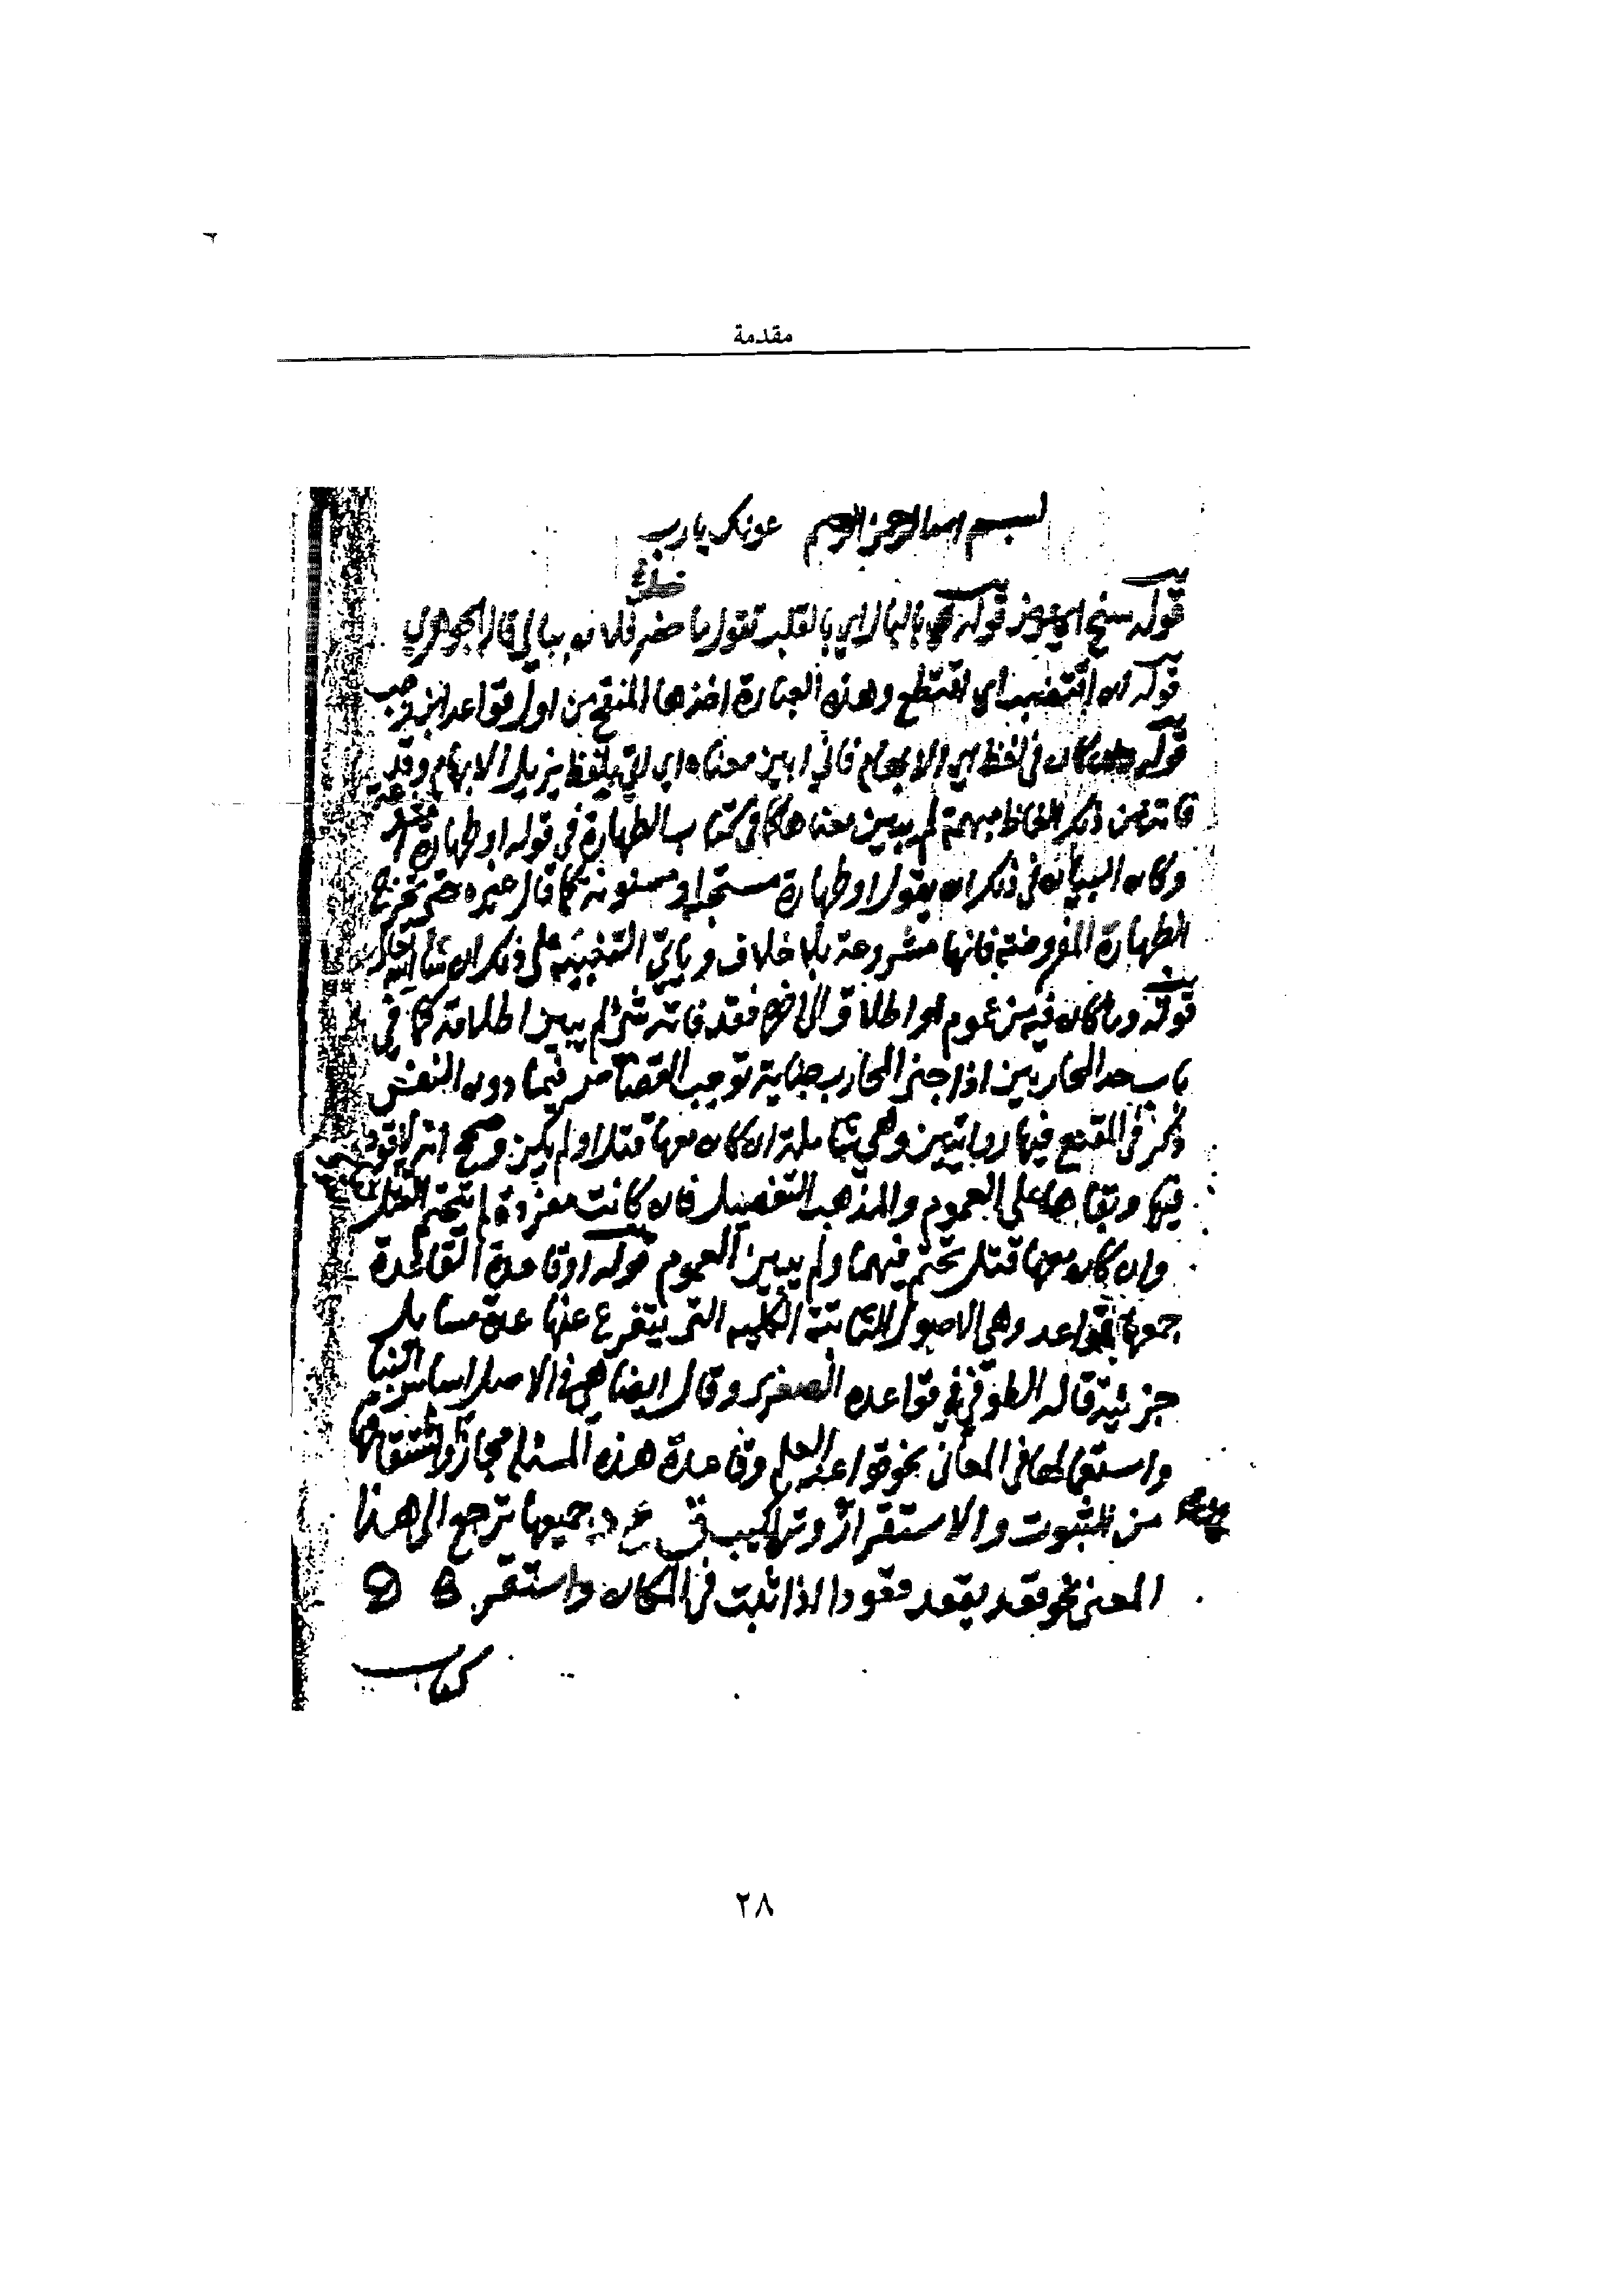 مقدمة
بسم الله الرحمن الرحيم عونك يا رب
قوله سنح اي عرض قوله بالبال اي بالقلب تقول ما خطر فلان ببالي قال الجوهري
قوله ان اقتضب اي اقتطع وهذه العبارة اخذها المنقح من اول قواعد ابن رجب
قوله وان كان في لفظه الابهام فاني ابين معناه اي اتي بلفظ يزيل الابهام وقد
فاته من ذكر الفاظ مبهمة لم يبين معناها كما في كتاب الطهارة في قوله او طهارة مشروعة
وكان البيان في ذكر ان يقول او طهارة مستحبة او مسنونة كما قال غيره حتى تخرج
الطهارة المفروضة فانها مشروعة بلا خلاف وياتي التنبيه على ذلك ان شاء الله تعالى
قوله وما كان فيه من عموم او اطلاق الى اخره فقد فاته شيء لم يبين اطلاقه كما في
باب حد المحاربين اذا جنى المحارب جناية توجب القصاص فيما دون النفس
ذكر في المقنع فيها روايتين وهي شاملة ان كان معها قتل او لم يكن وصحح انه لا قود
فيها وبقاها على العموم والمذهب التفصيل فان كانت مفردة لم يتحتم القتل
وان كان معها قتل تحتم فيهما ولم يبين العموم قوله او قاعدة القاعدة
جمعها قواعد وهي الاصول الثابتة الكلية التي يتفرع عنها عدة مسايل
جزئية قاله الطوفي في قواعده الصغرى وقال ايضا هي في الاصل اساس البناء
واستعمالها في المعاني نحو قواعد العلم وقاعدة هذه المسئلة مجازا واشتقاقها
من الثبوت والاستقرار وتراكيب ق ع د جميعها ترجع الى هذا
المعنى نحو قعد يقعد قعودا اذا ثبت في المكان واستقر
كتاب
٢٨